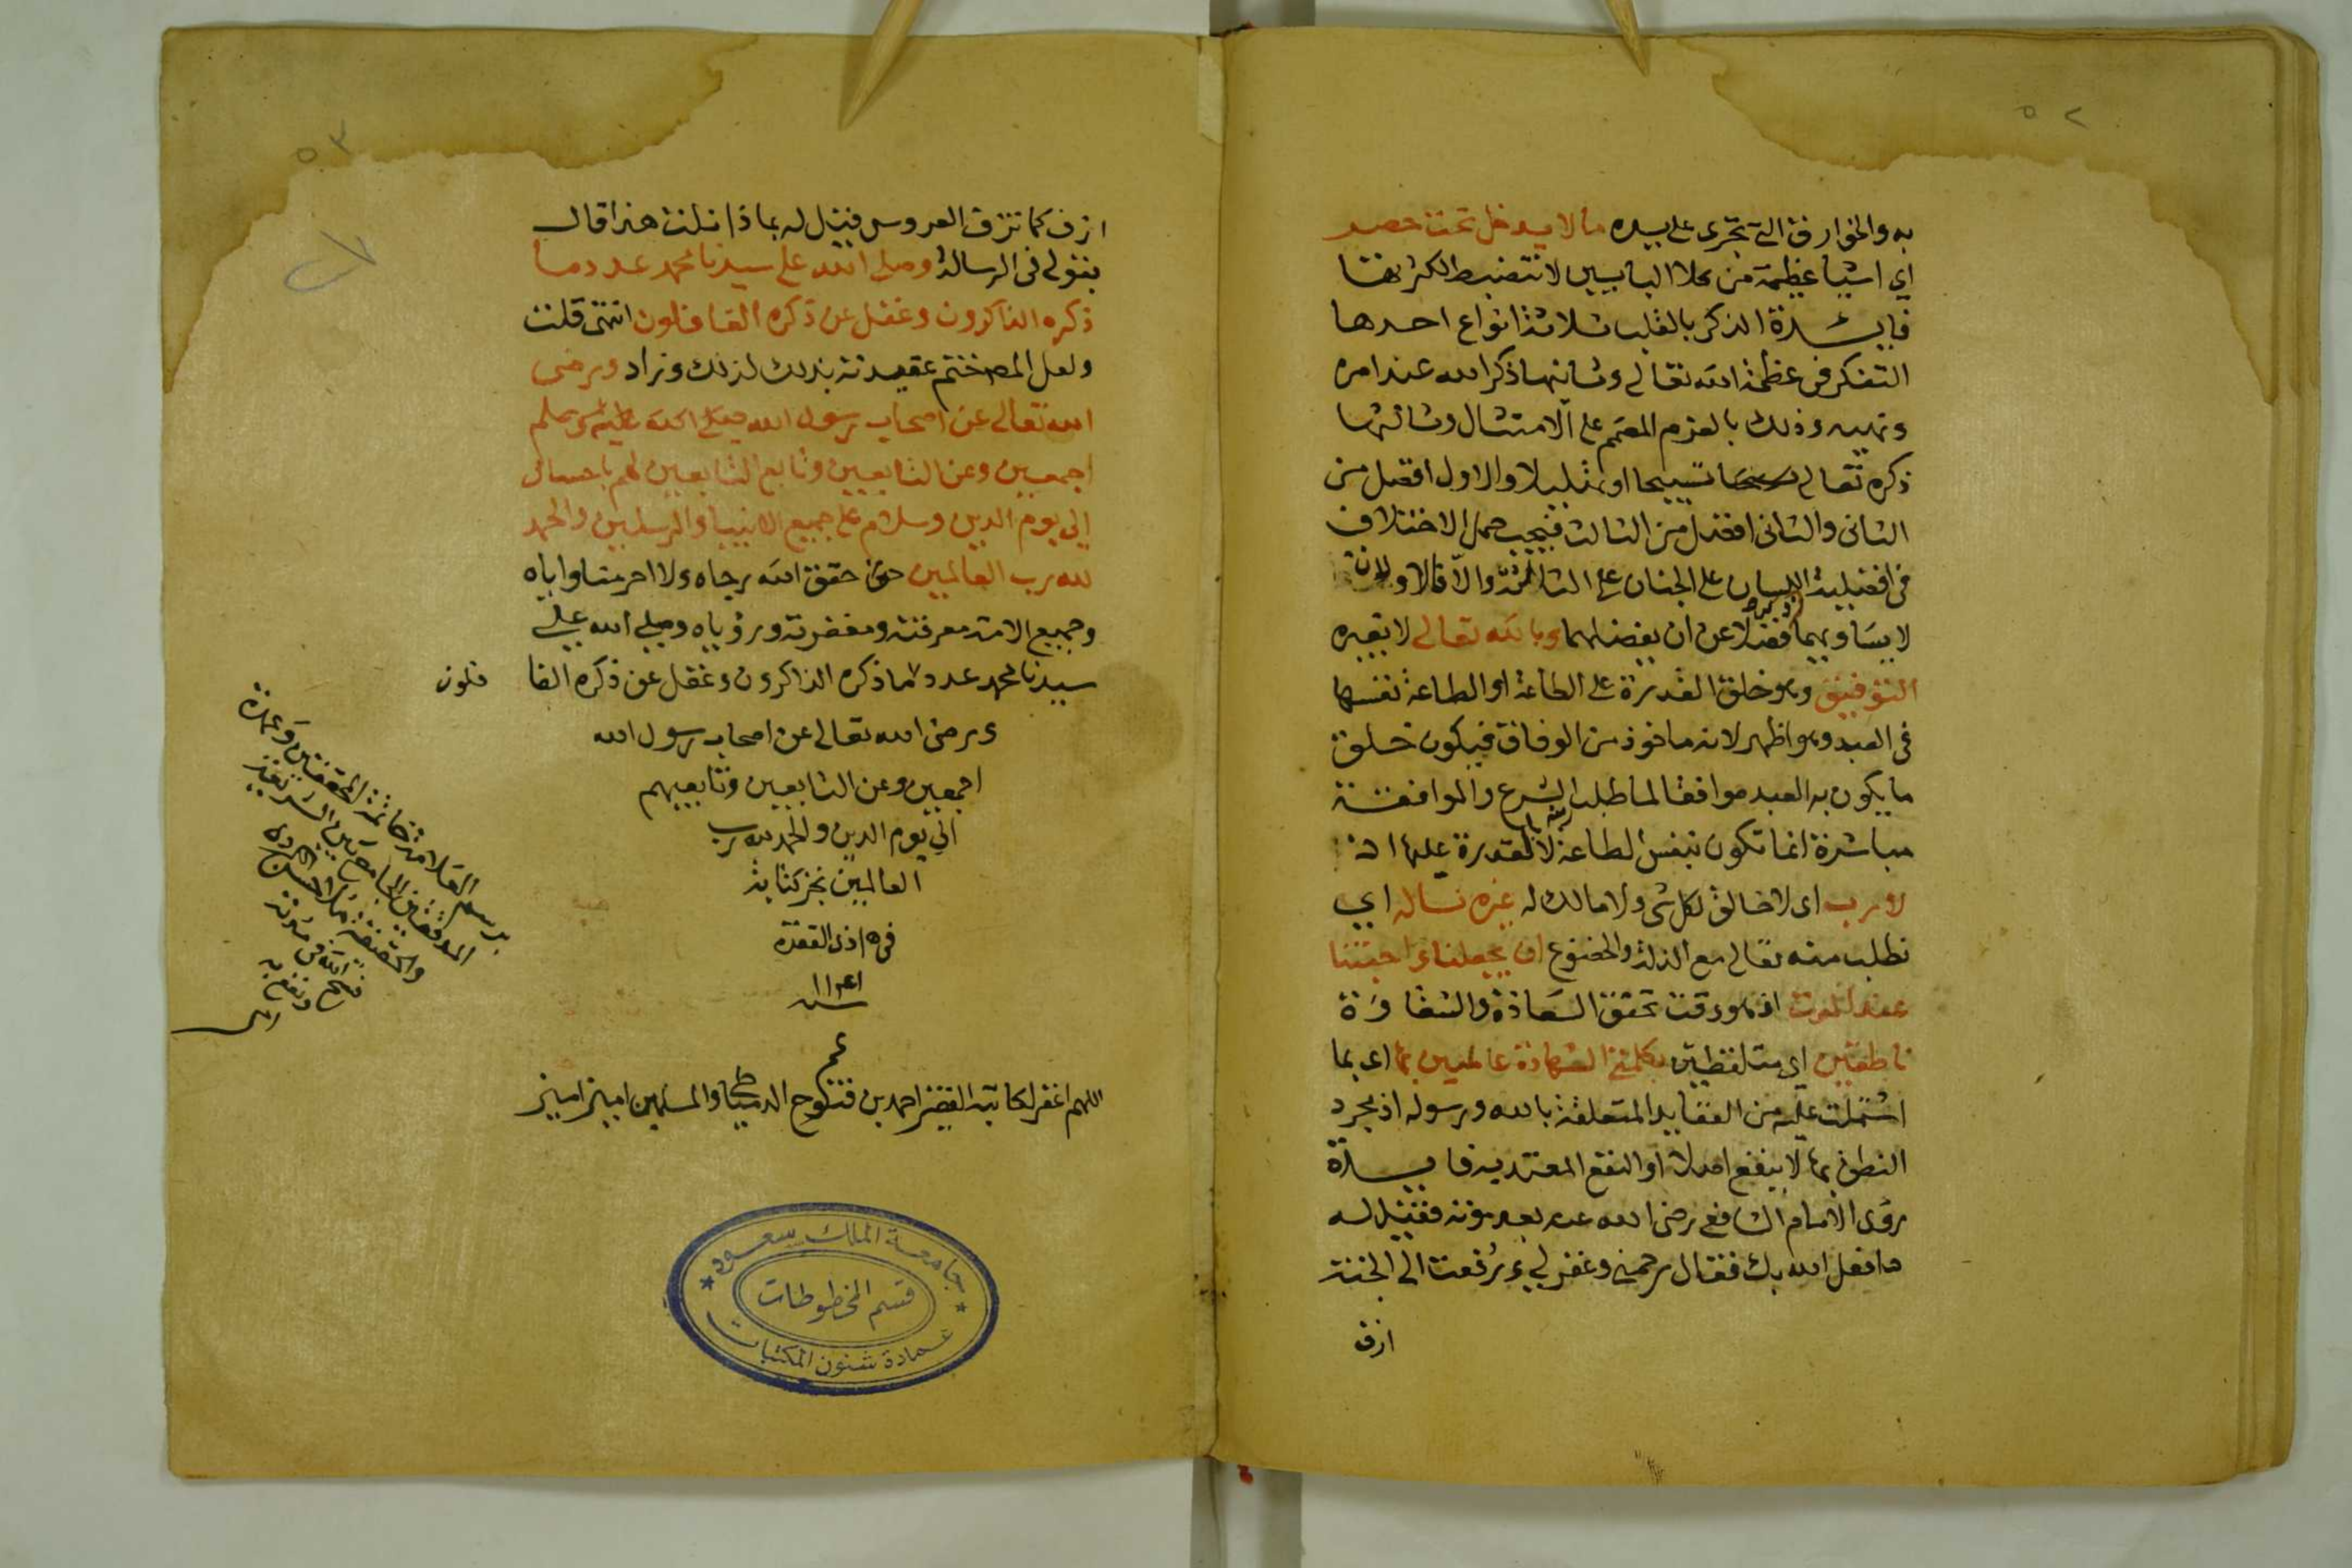 ٥٢
به والخوارق التي تجرى على يده مالا يدخل تحت حصر
اي اشيا عظيمة من كلا البابين لا تنضبط لكثرتها
فايدة الذكر بالقلب ثلاثة انواع احدها
التفكر فى عظمة الله تعالى وثانيها ذكر الله عند امره
ونهيه وذلك بالعزم المصمم على الامتثال وثالثها
ذكره تعالى تسبيحا او تهليلا والاول افضل من
الثانى والثانى افضل من الثالث فيجب حمل الاختلاف
فى افضلية اللسان على الجنان على الثالث والا فالاولان
لا يساويهما فضلا عن ان يفضلهما وبالله تعالى لا بغيره
التوفيق وهو خلق القدرة على الطاعة او الطاعة نفسها
فى العبد وهو اظهر لانه ماخوذ من الوفاق فيكون خلق
ما يكون به العبد موافقا لما طلب الشرع والموافقة
مباشرة انما تكون بنفس الطاعة لا بالقدرة عليها
لا رب اى لا خالق لكل شى ولا مالك له غيره نساله اي
نطلب منه تعالى مع الذلة والخضوع ان يجعلنا واحبتنا
عند الموت اذ هو وقت تحقق السعادة والشقاوة
ناطقين اي متلفظين بكلمتي الشهادة عالمين بها اى بما
اشتملت عليه من العقايد المتعلقة بالله ورسوله اذ مجرد
النطق بها لا ينفع اصلا او النفع المعتد به فايدة
روى الامام الشافعى رضى الله عنه بعد موته فقيل له
ما فعل الله بك فقال رحمني وغفر لي وزففت الى الجنة
ازف
٥٣
ازف كما تزف العروس فقيل له بماذا نلت هذا قال
بقولى فى الرسالة وصلى الله على سيدنا محمد عدد ما
ذكره الذاكرون وغفل عن ذكره الغافلون انتهى قلت
ولعل المص ختم عقيدته بذلك لذلك وزاد ورضى
الله تعالى عن اصحاب رسول الله صلى الله عليه وسلم
اجمعين وعن التابعين وتابع التابعين لهم باحسان
الى يوم الدين وسلام على جميع الانبيا والمرسلين والحمد
لله رب العالمين حقق الله رجاه ولا احرمنا واياه
وجميع الامة معرفته ومغفرته ورؤياه وصلى الله على
سيدنا محمد عدد ما ذكره الذاكرون وغفل عن ذكره الغا فلون
ورضى الله تعالى عن اصحاب رسول الله
اجمعين وعن التابعين وتابعيهم
الي يوم الدين والحمد لله رب
العالمين نجز كتابة
فى ١٥ ذى القعدة
سنة
اللهم اغفر لكاتبه الفقير احمد بن فتوح الدمياطي والمسلمين امين امين
برسم العلامة خاتمة المحققين وعمدة
المدققين الجامع بين الشريعة
والحقيقة
فسح الله فى مدته
ونفع به
امين
جامعة الملك سعود
قسم المخطوطات
عمادة شئون المكتبات